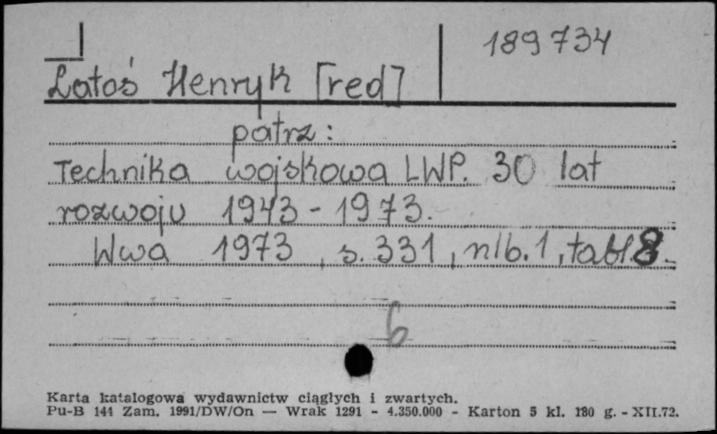 189734
Latoś Henryk [red]
patrz:
Technika wojskowa LWP. 30 lat
rozwoju 1943-1973.
Wwa 1973, s. 331, nlb. 1, tabl. 8.
6
Karta katalogowa wydawnictw ciągłych i zwartych.
Pu-B 141 Zam. 1991/DW/On — Wrak 1291 - 4.350.000 - Karton 5 kl. 180 g. - XII.72.